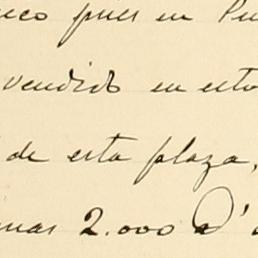 pues en Pu
vendido en esto
de esta plaza,
2.000 D'